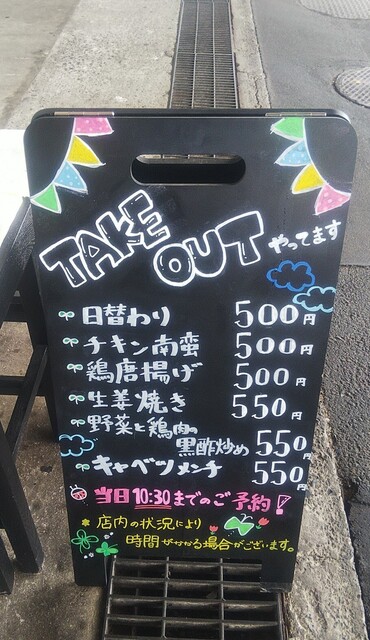 TAKE
OUT やってます
日替わり 500円
チキン南蛮 500円
鶏唐揚げ 500円
生姜焼き 550円
野菜と鶏肉の
黒酢炒め 550円
キャベツメンチ 550円
当日10:30までのご予約!
店内の状況により
時間がかかる場合がございます。